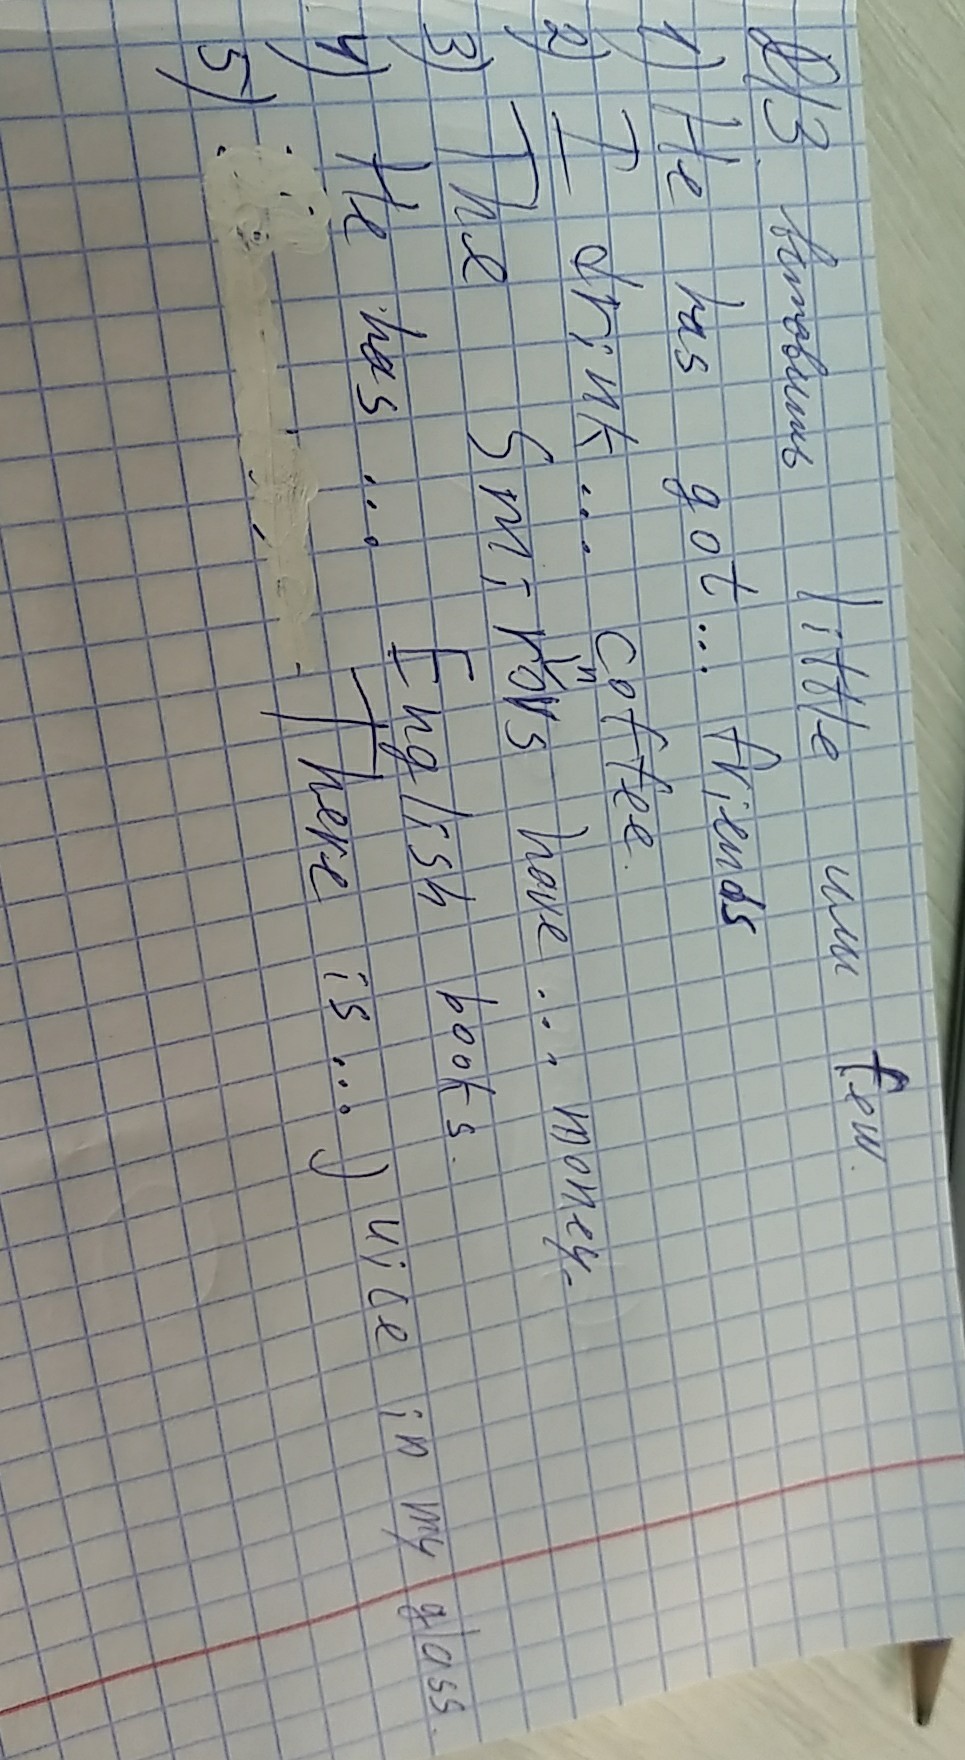 Д/З вставить little или few.
1) He has got... friends
2) I drink ... coffee.
3) The Smirnovs have ... money.
4) He has ... English books.
5) There is ... juice in my glass.